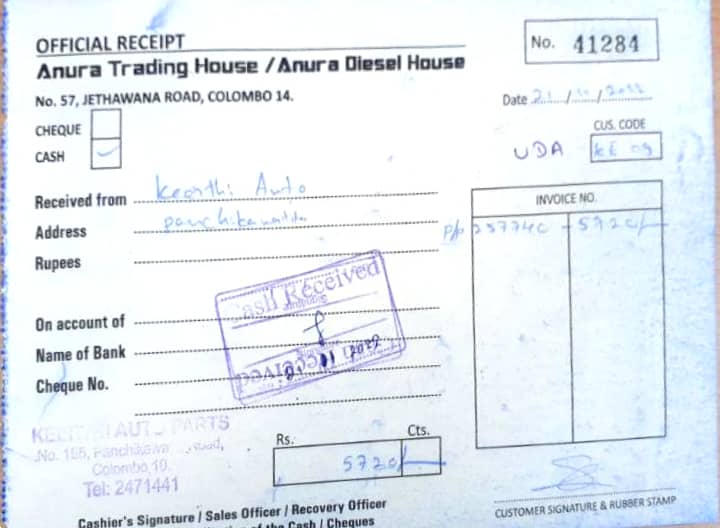 OFFICIAL RECEIPT
No. 41284
Anura Trading House / Anura Diesel House
No. 57, JETHAWANA ROAD, COLOMBO 14.
Date 21/ / 2022
CHEQUE
CUS. CODE
CASH
UDA KE 09
Received from Keerthi Auto
INVOICE NO.
Address
P/P 25774C - 5720/-
Rupees
Cash Received
On account of
Name of Bank
2022
Cash Received
Cheque No.
KEERTHI AUTO PARTS
No. 156, Panchikawa Road,
Colombo,10.
Tel: 2471441
Rs. Cts.
5720/-
Cashier's Signature / Sales Officer / Recovery Officer
of the Cash / Cheques
CUSTOMER SIGNATURE & RUBBER STAMP